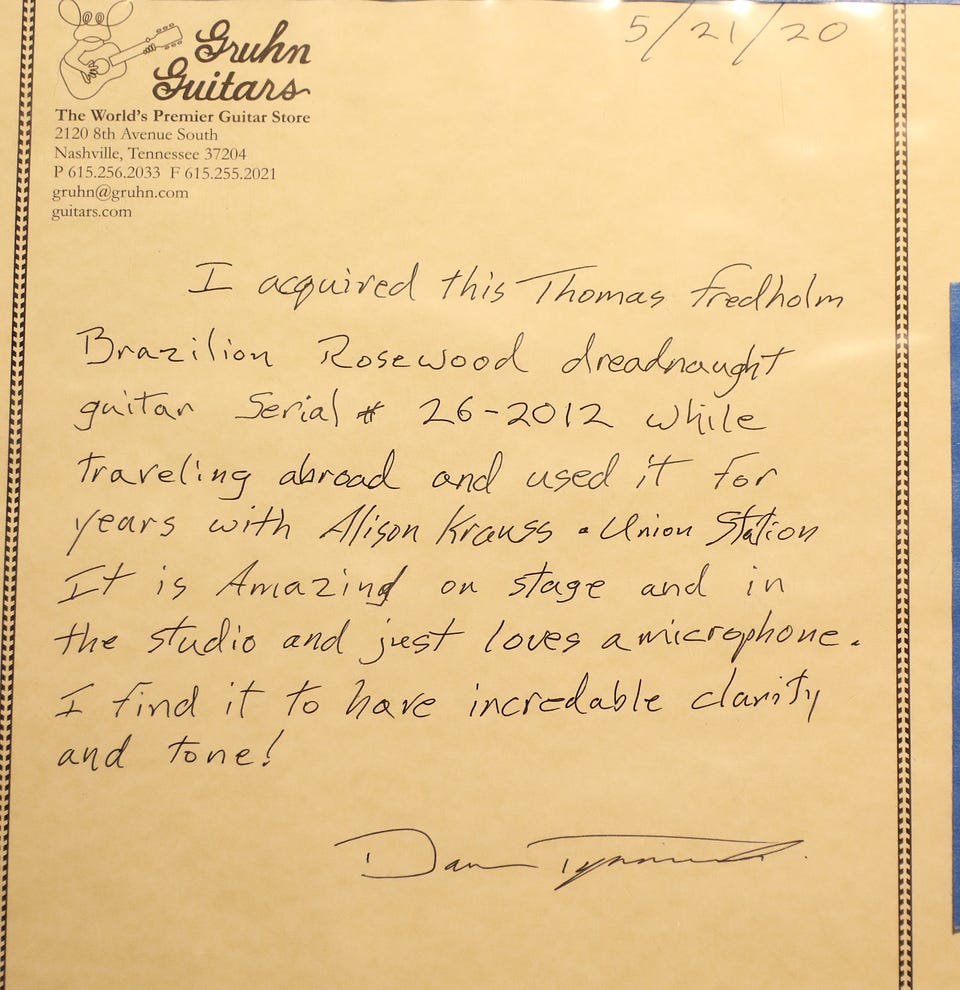 5/21/20
Gruhn
Guitars
The World's Premier Guitar Store
2120 8th Avenue South
Nashville, Tennessee 37204
P 615.256.2033 F 615.255.2021
gruhn@gruhn.com
guitars.com
I acquired this Thomas Fredholm
Brazilion Rosewood dreadnaught
guitar Serial # 26-2012 while
traveling abroad and used it for
years with Alison Krauss • Union Station
It is Amazing on stage and in
the studio and just loves a microphone.
I find it to have incredable clarity
and tone!
Dan Tyminski